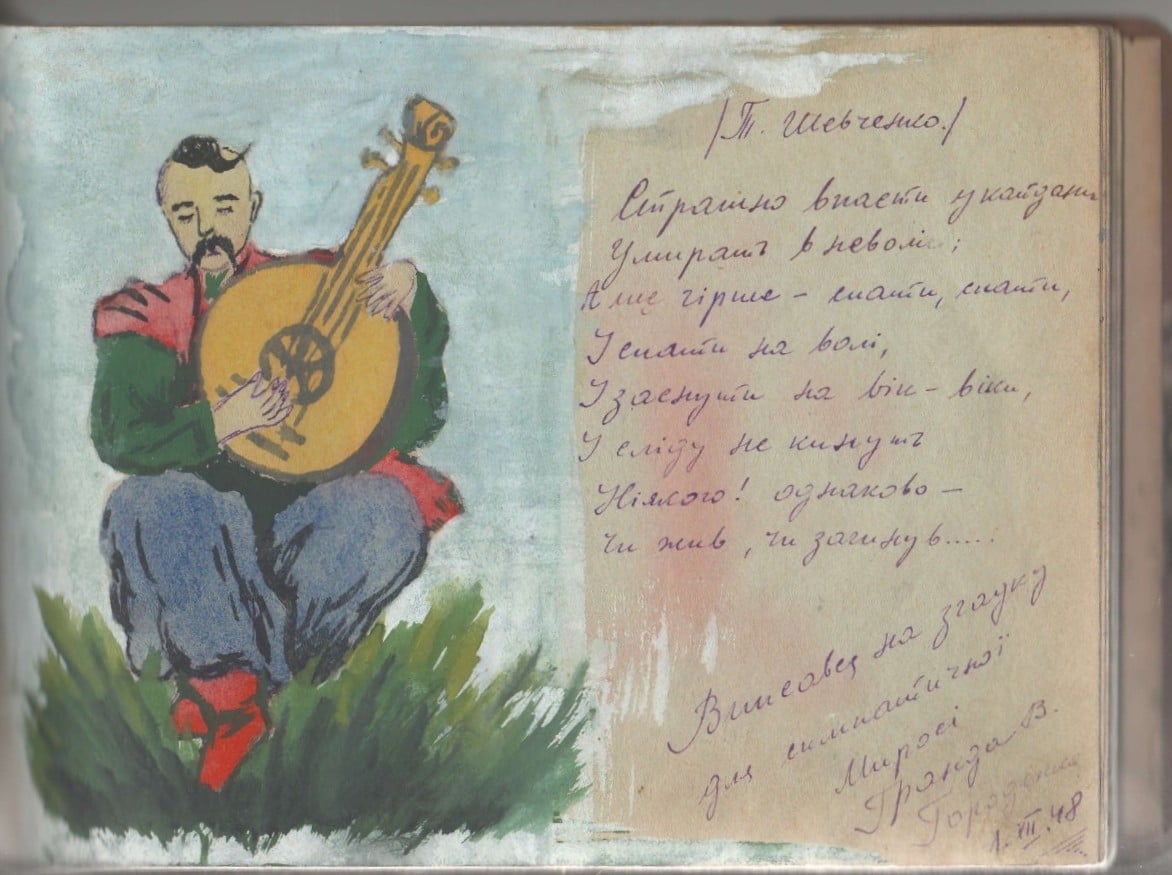 /Т. Шевченко./
Страшно впасти у кайдани
Умирать в неволі;
А ще гірше – спати, спати,
І спати на волі,
І заснути на вік – віки,
І сліду не кинуть
Ніякого! однаково –
Чи жив, чи загинув.....
Вписавсь на згадку
для симпатичної
Миросі
Гранда В.
Городенка
1.XII.48